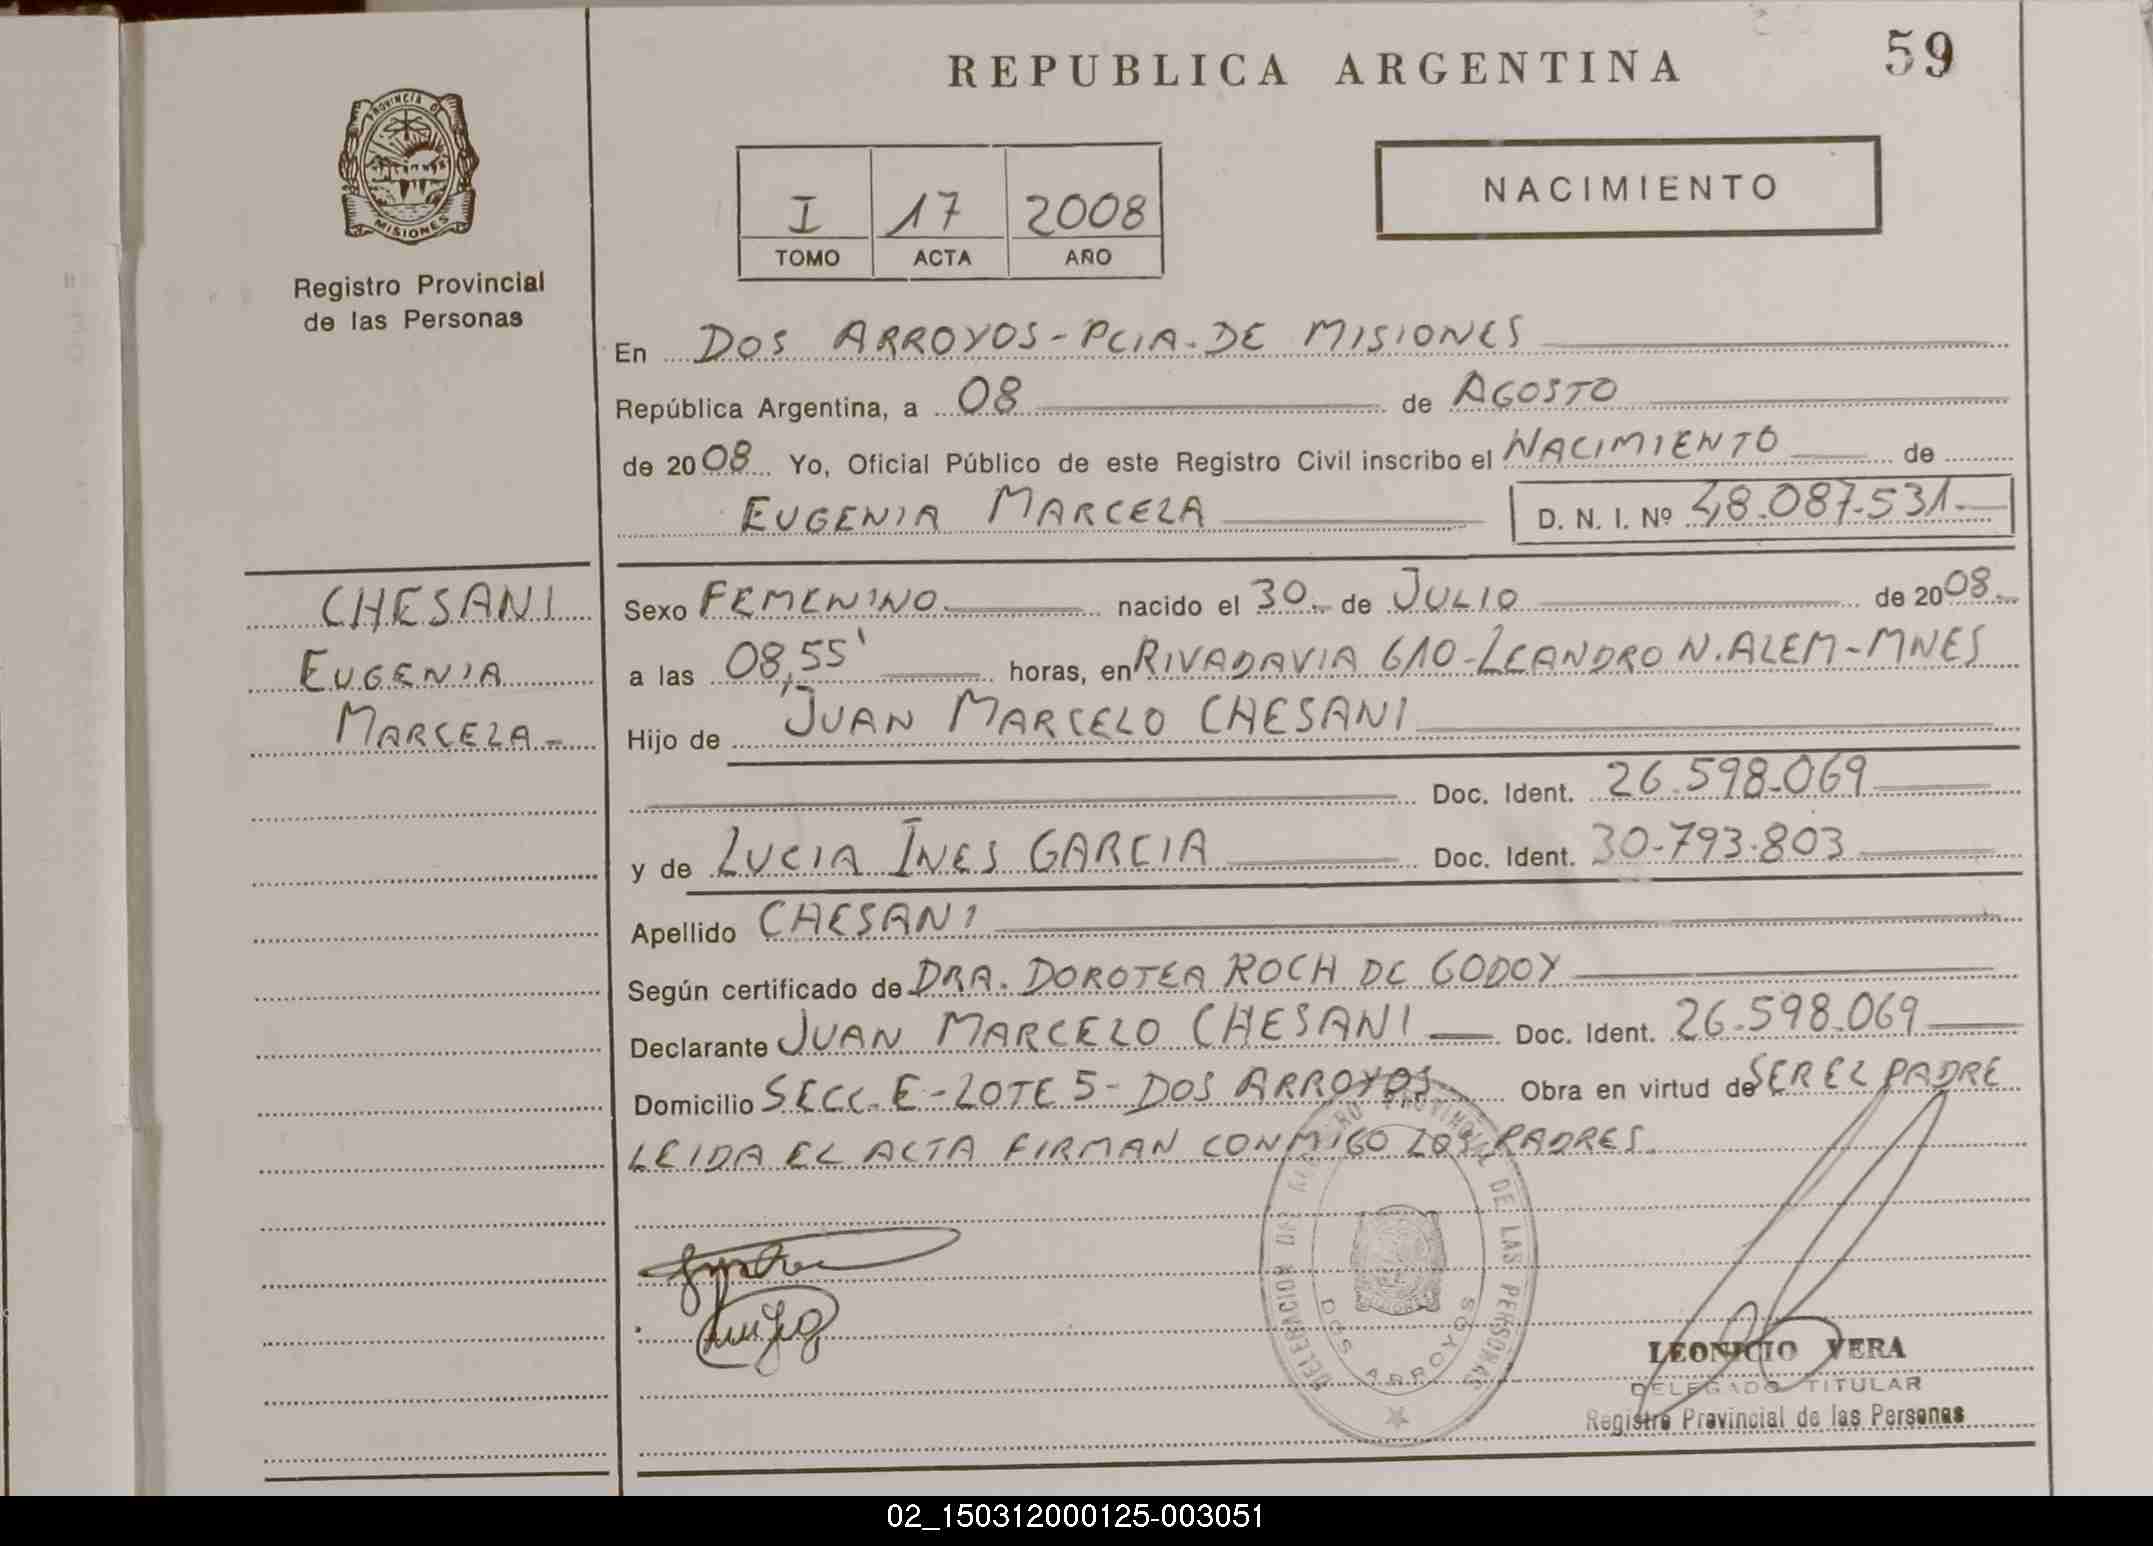 REPUBLICA ARGENTINA
59
PROVINCIA DE
MISIONES
Registro Provincial
de las Personas
I 17 2008
TOMO ACTA AÑO
NACIMIENTO
En DOS ARROYOS - PCIA. DE MISIONES
República Argentina, a 08 de AGOSTO
de 2008 Yo, Oficial Público de este Registro Civil inscribo el NACIMIENTO de
EUGENIA MARCELA D. N. I. Nº 48.087.531-
CHESANI
EUGENIA
MARCELA -
Sexo FEMENINO nacido el 30 de JULIO de 2008
a las 08,55' horas, en RIVADAVIA 610 - LEANDRO N. ALEM - MNES
Hijo de JUAN MARCELO CHESANI
Doc. Ident. 26.598.069
y de LUCIA INES GARCIA Doc. Ident. 30.793.803
Apellido CHESANI
Según certificado de DRA. DOROTEA ROCH DE GODOY
Declarante JUAN MARCELO CHESANI Doc. Ident. 26.598.069
Domicilio SECC. E - LOTE 5 - DOS ARROYOS. Obra en virtud de SER EL PADRE
LEIDA EL ACTA FIRMAN CONMIGO LOS PADRES.
PROVINCIAL DE LAS PERSONAS
DOS ARROYOS
LEONICIO VERA
DELEGADO TITULAR
Registro Provincial de las Personas
02_150312000125-003051